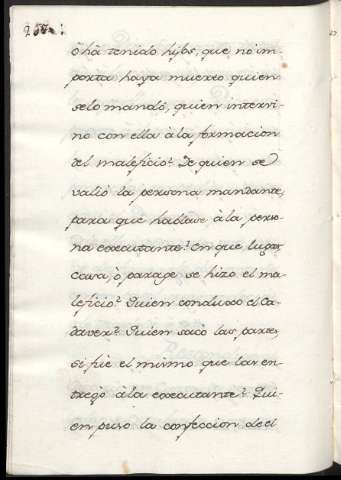 ò hà tenido hijos, que no im-
porta haya muerto quien
selo mandó, quien intervi-
no con ella à la formacion
del maleficio? De quien se
valiò la persona mandante,
para que hablase à la perso-
na executante? En que lugar,
casa, ò parage se hizo el ma-
leficio? Quien conduxo el Ca-
daver? Quien sacò las partes,
si fuè el mismo que las en-
tregò à la executante? Qui-
en puso la confeccion de el